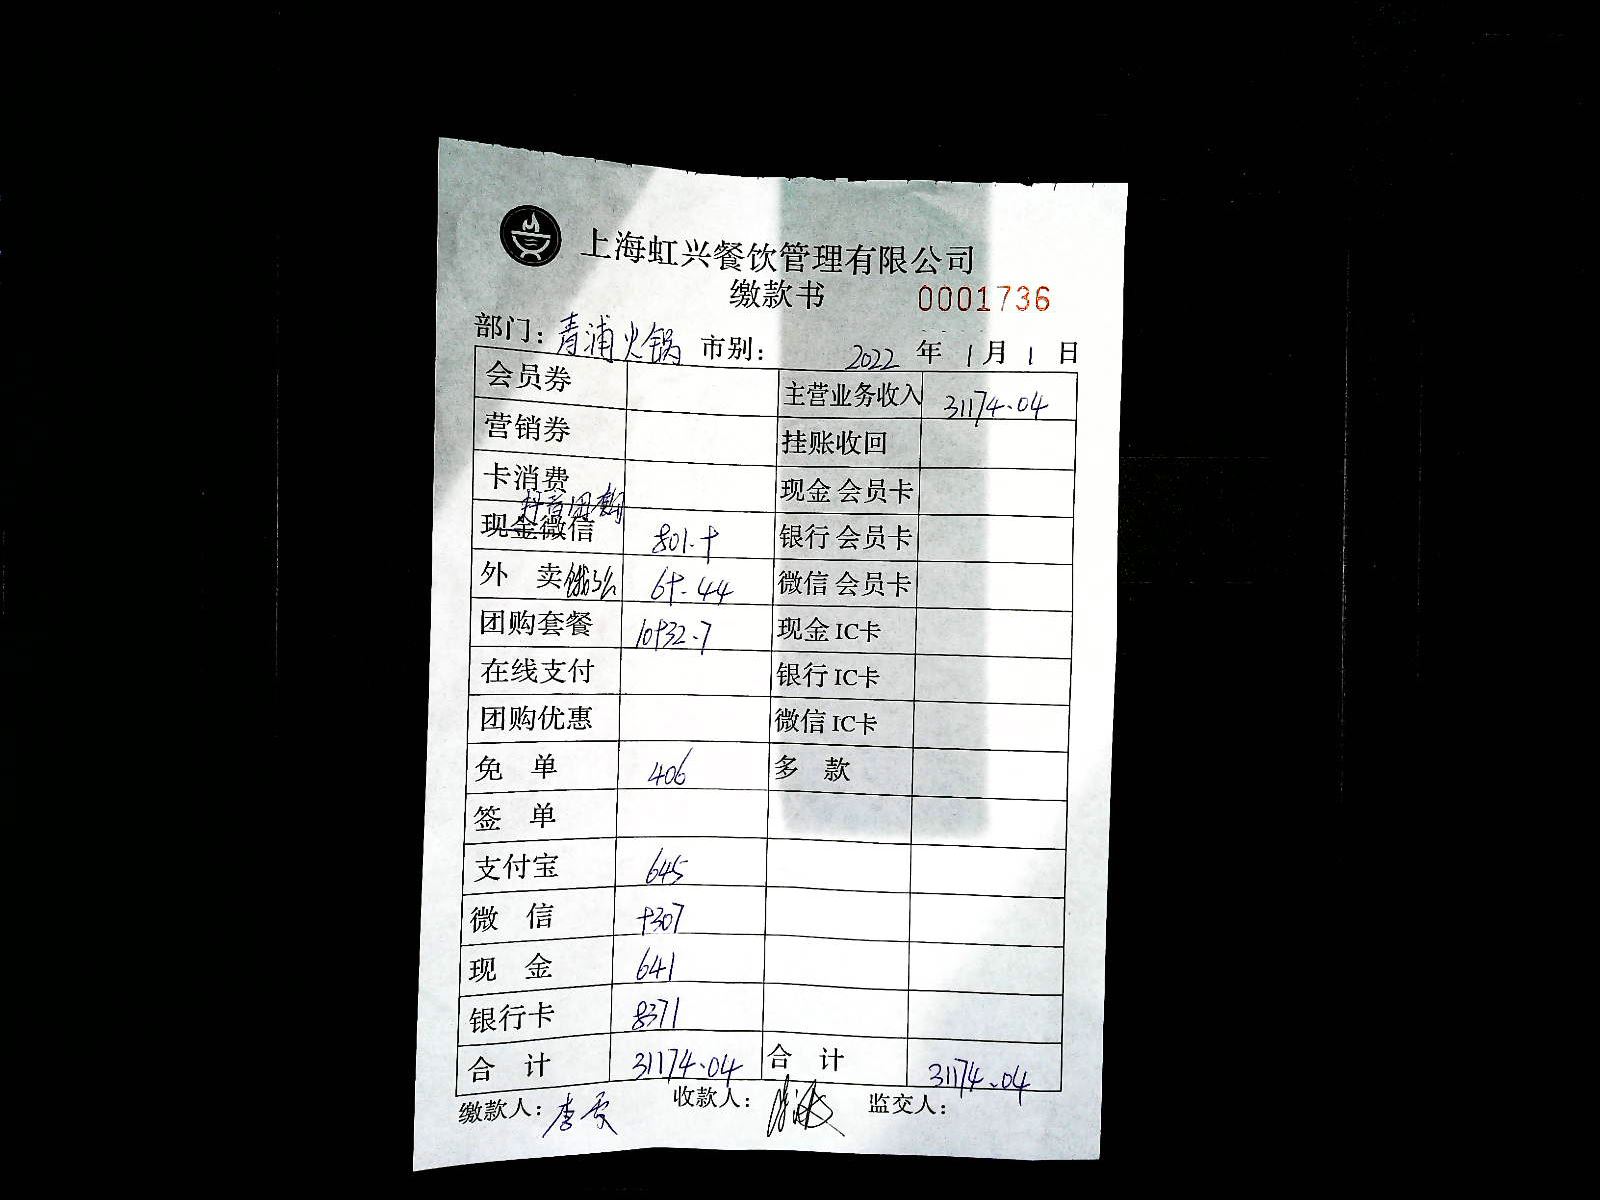 上海虹兴餐饮管理有限公司
缴款书 0001736
部门：青浦火锅 市别： 2022 年 1 月 1 日
会员券 主营业务收入 31174.04
营销券 挂账收回
卡消费 现金会员卡
抖音团购
现金微信 801.9 银行会员卡
外 卖 饿了么 69.44 微信会员卡
团购套餐 10932.7 现金IC卡
在线支付 银行IC卡
团购优惠 微信IC卡
免 单 406 多 款
签 单
支付宝 645
微 信 9307
现 金 641
银行卡 8371
合 计 31174.04 合 计 31174.04
缴款人：李 收款人： 监交人：